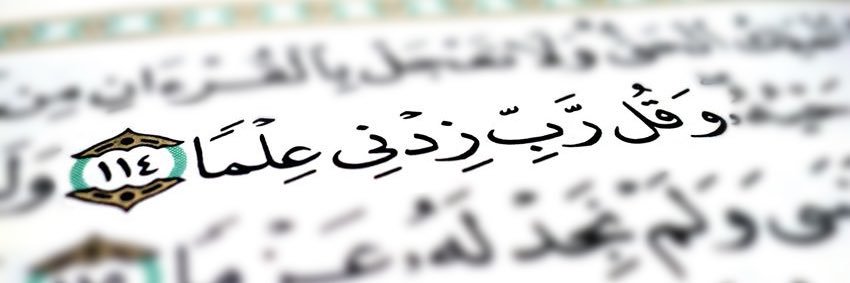 وَلَا تَعْجَلْ بِالْقُرْءَانِ مِن
وَقُل رَّبِّ زِدْنِي عِلْمًا ١١٤
وَلَمْ نَجِدْ لَهُ عَزْمًا ١١٥